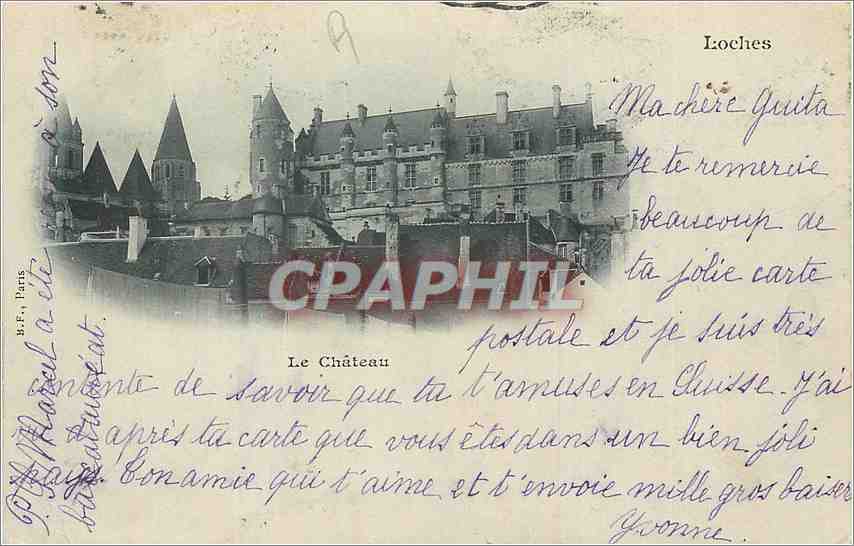 Loches
Ma chère Guita
Je te remercie
beaucoup de
ta jolie carte
postale et je suis très
contente de savoir que ta t'amuses en Suisse. J'ai
d'après ta carte que vous êtes dans un bien joli
pays. Ton amie qui t'aime et t'envoie mille gros baiser
Yvonne.
P.S. Marcel a été
à son
baccalauréat.
Le Château
B.F., Paris
CPAPHIL